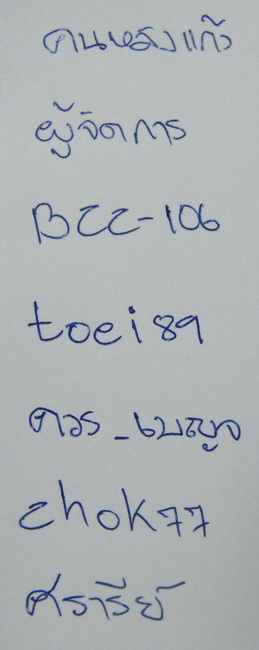 คนหลังแก้ว
ผู้จัดการ
BCC-106
toei89
ควร_เบญจ
chok77
ศรารีย์